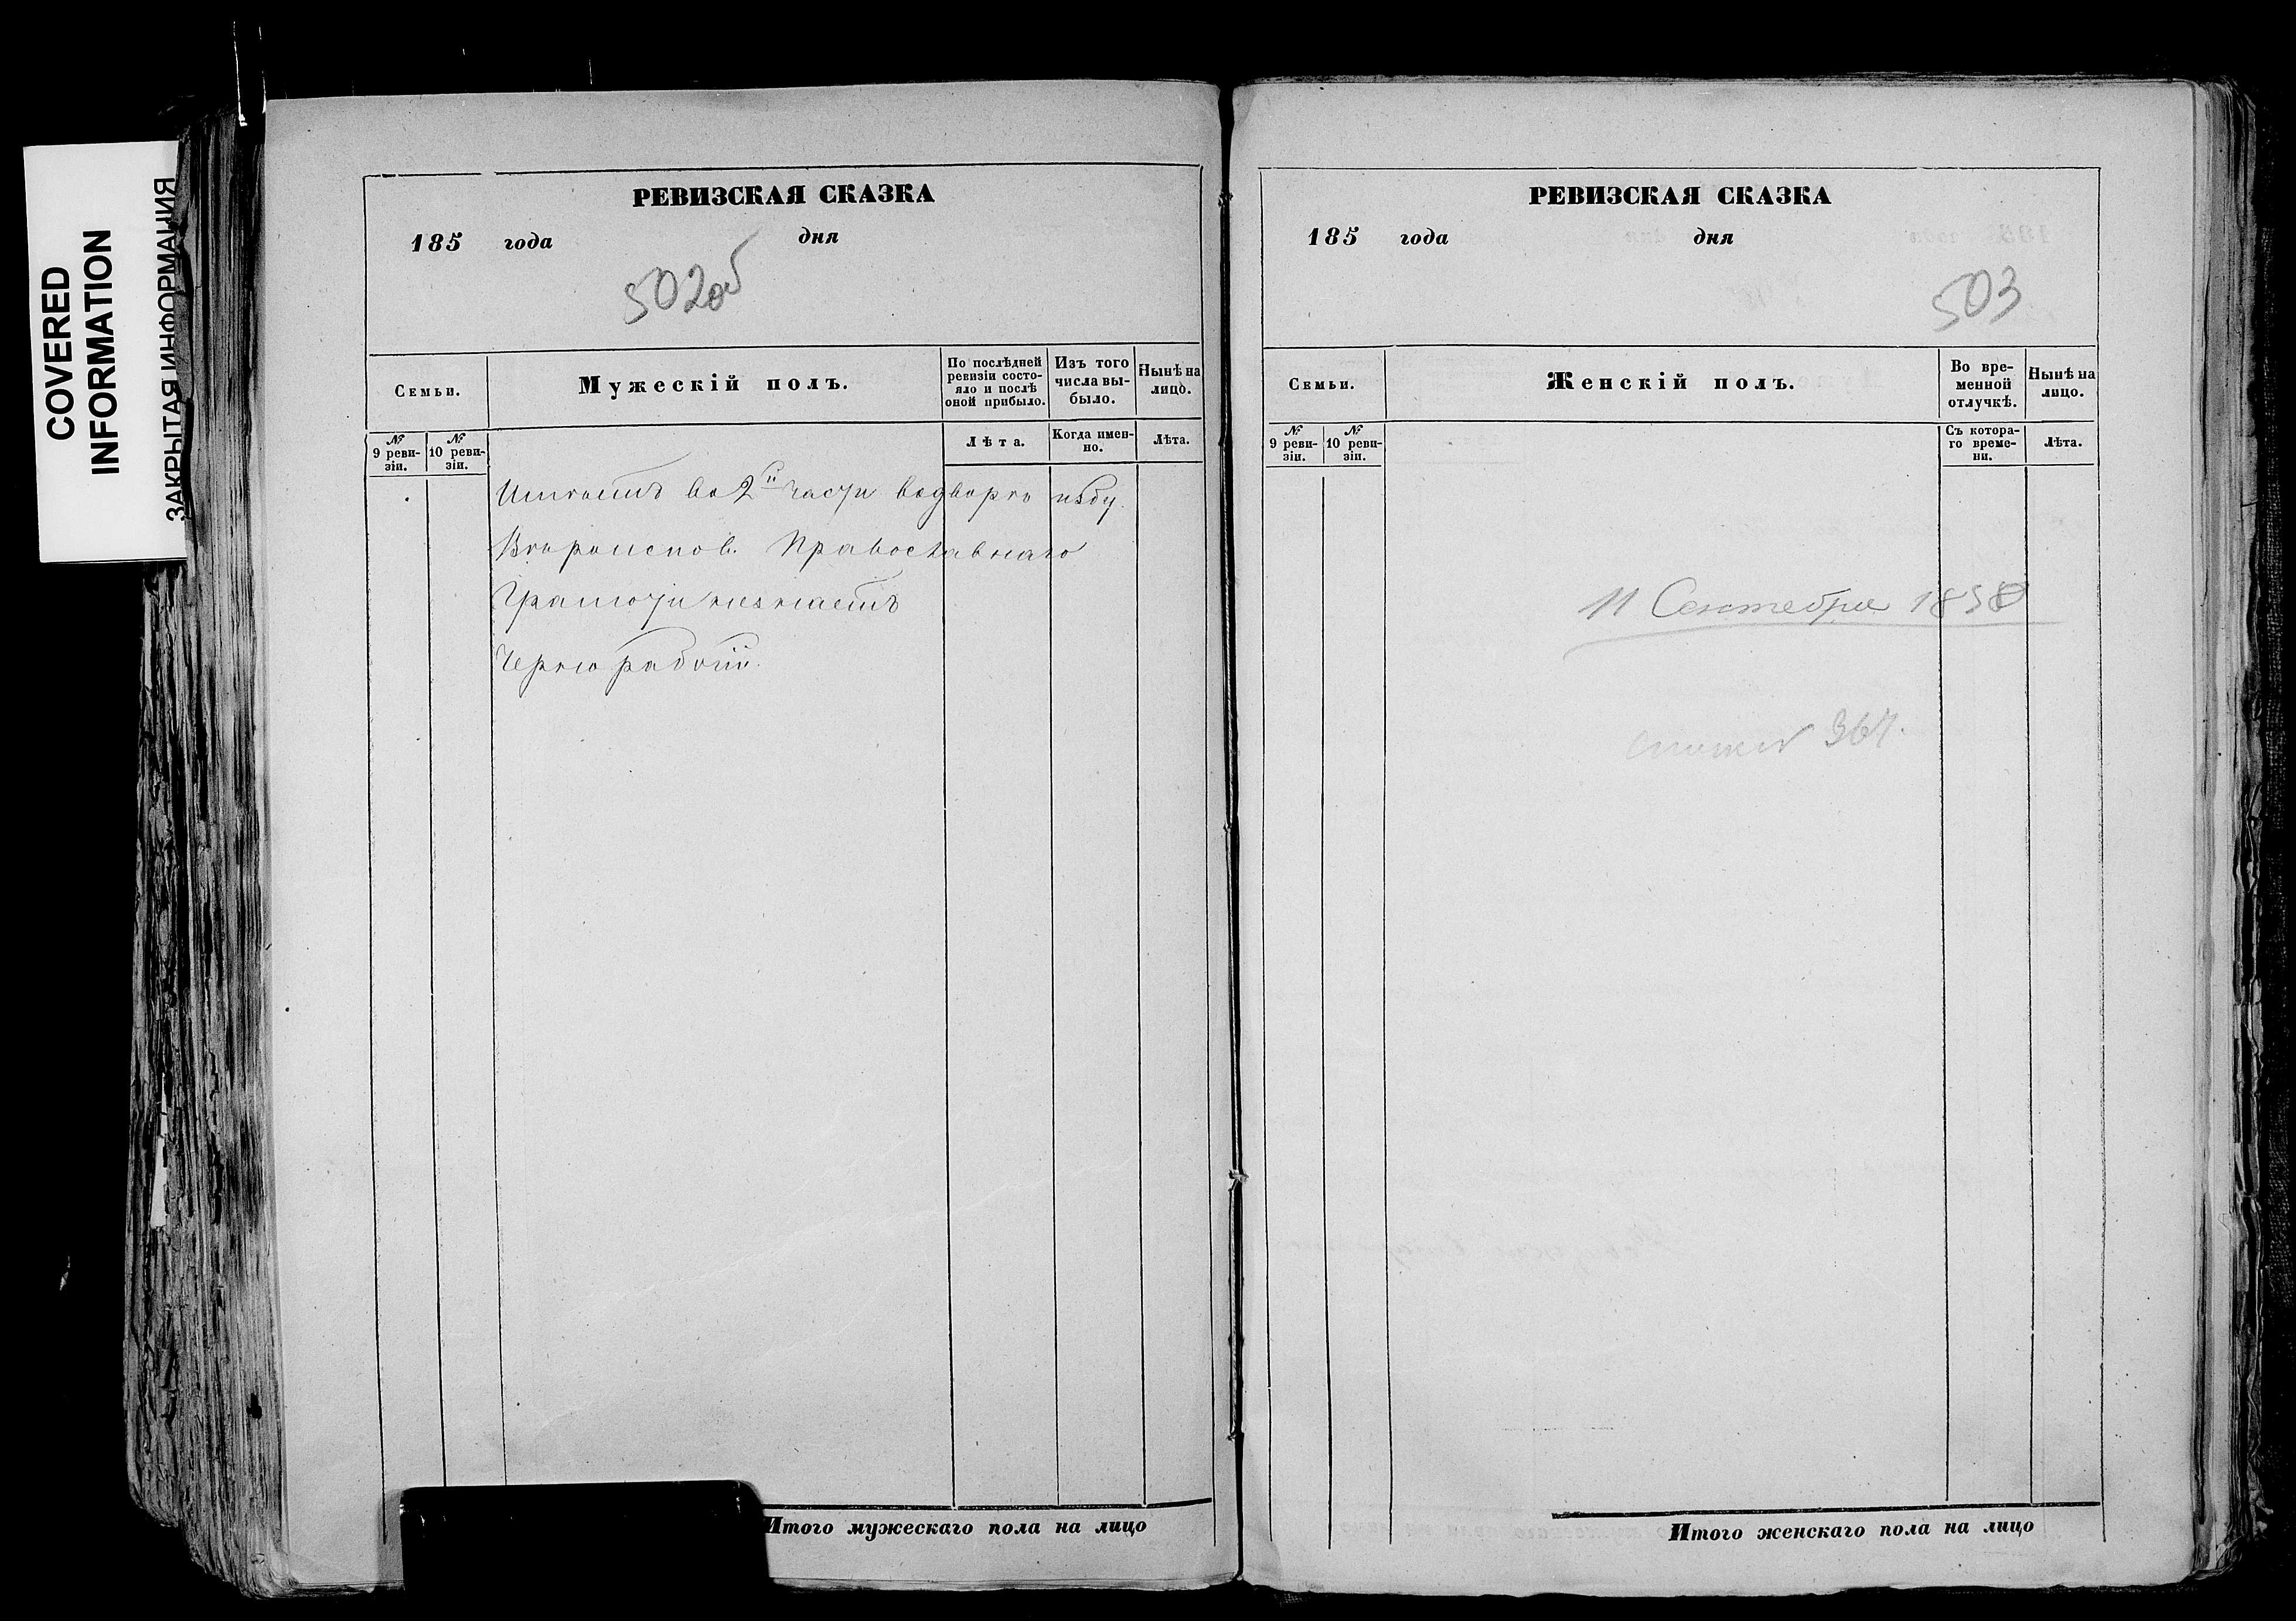 COVERED
INFORMATION
ЗАКРЫТАЯ ИНФОРМАЦИЯ
РЕВИЗСКАЯ СКАЗКА
185 года дня
502об
Семьи.
Мужескій полъ.
По послѣдней ревизіи состояло и послѣ оной прибыло.
Изъ того числа выбыло.
Нынѣ на лицо.
№ 9 ревизіи.
№ 10 ревизіи.
Лѣта.
Когда именно.
Лѣта.
Имѣетъ во 2й части въ дворѣ избу.
Вѣроиспов. Православнаго
Грамоти незнаетъ
Чернорабочій.
Итого мужескаго пола на лицо
РЕВИЗСКАЯ СКАЗКА
185 года дня
503
Семьи.
Женскій полъ.
Во временной отлучкѣ.
Нынѣ на лицо.
№ 9 ревизіи.
№ 10 ревизіи.
Съ котораго времени.
Лѣта.
11 Сентебря 1858
367.
Итого женскаго пола на лицо